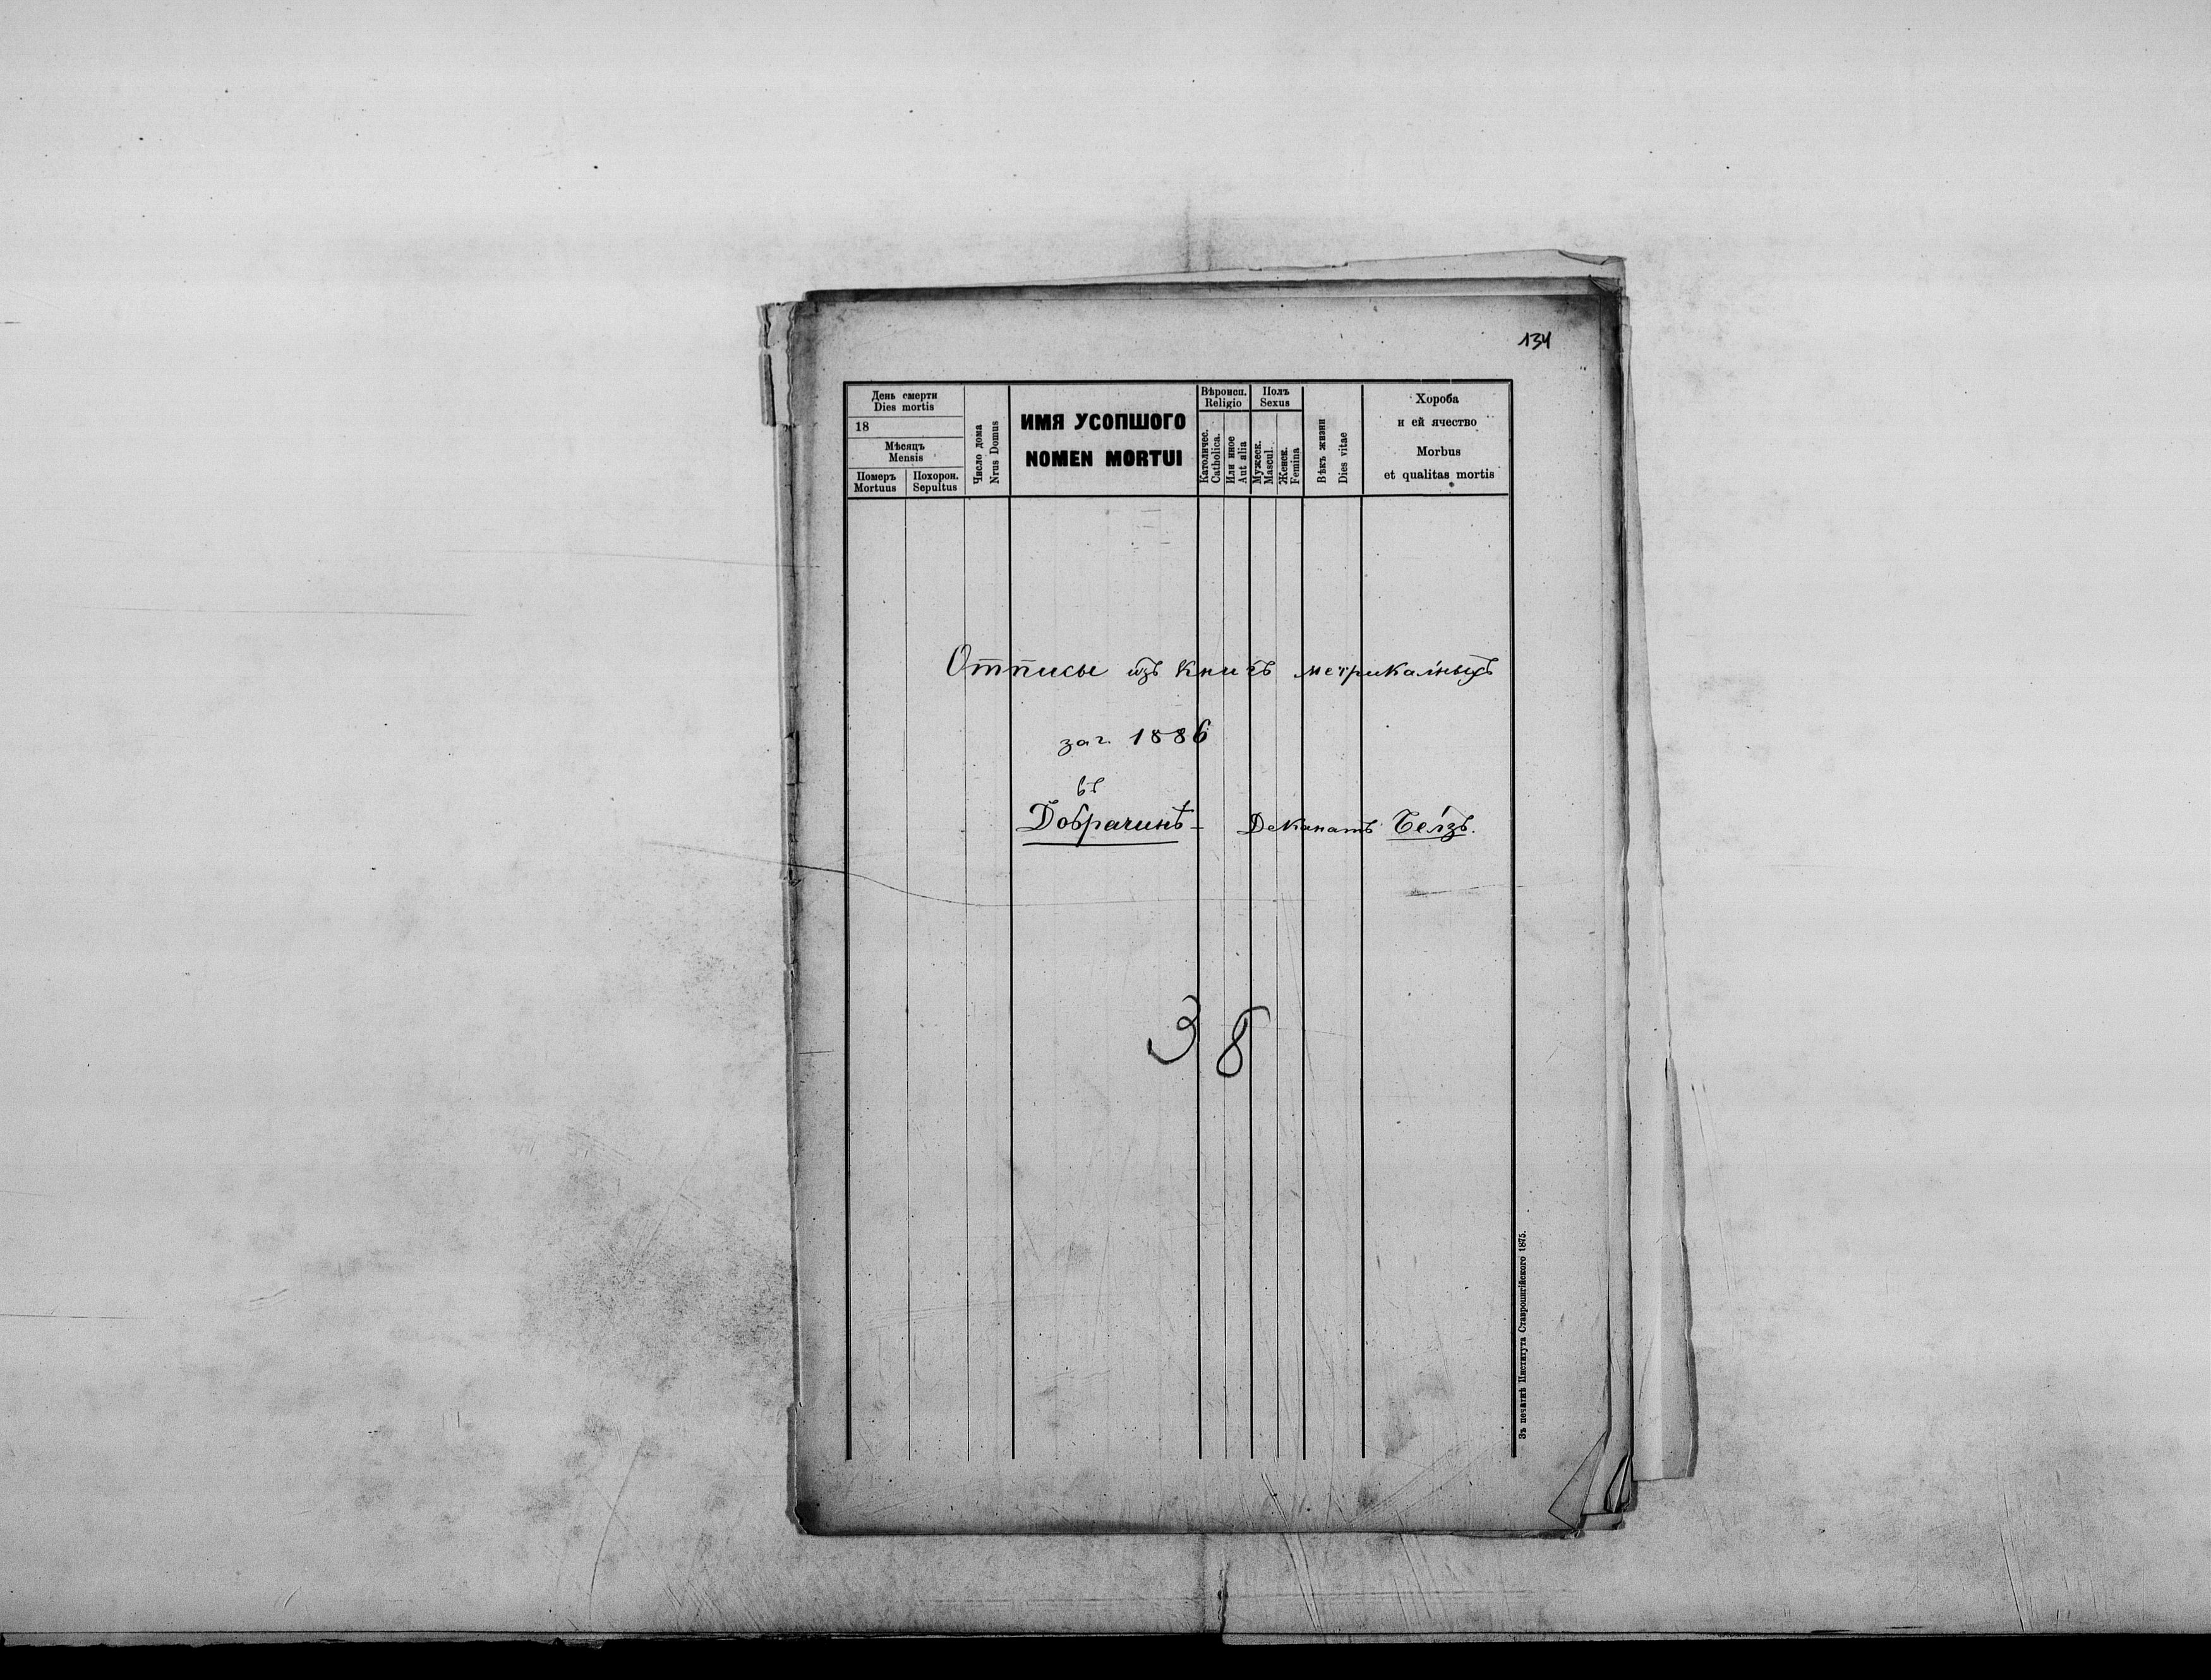 134
День смерти
Dies mortis
18
Мѣсяцъ
Mensis
Померъ
Mortuus
Похорон.
Sepultus
Число дома
Nrus Domus
ИМЯ УСОПШОГО
NOMEN MORTUI
Вѣроисп.
Religio
Католичес.
Catholica.
Или иное
Aut alia
Полъ
Sexus
Мужеск.
Mascul.
Женск.
Femina
Вѣкъ жизни
Dies vitae
Хороба
и ей ячество
Morbus
et qualitas mortis
Отписы изъ книгъ метрикальныхъ
за г. 1886
въ
Добрачинѣ - Деканатъ Белзъ.
38
Зъ печатнѣ Института Ставропигійского 1875.